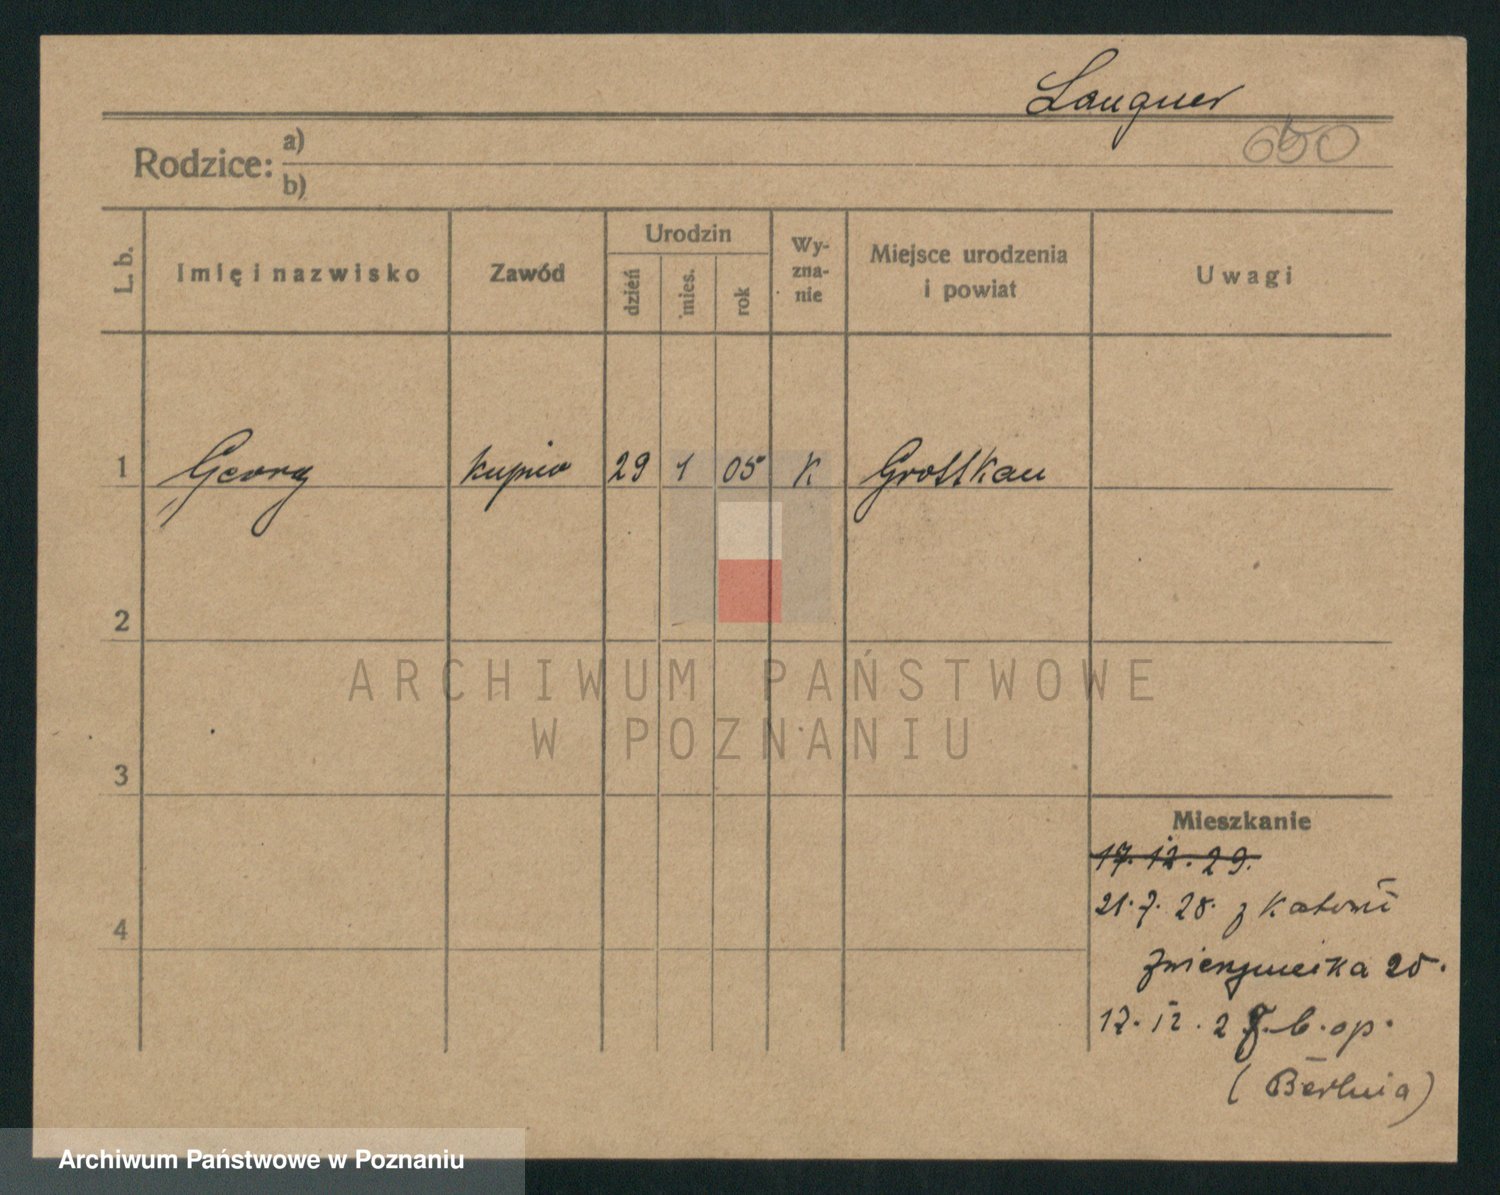 Langner
650
Rodzice: a)
b)
L. b. Imię i nazwisko Zawód Urodzin dzień mies. rok Wyznanie Miejsce urodzenia i powiat Uwagi
1 Georg kupiec 29 1 05 K Grottkau
2
3
4
Mieszkanie
17. 12. 29.
21. 7. 28. z Katowic
Zwierzyniecka 20.
17. 12. 2 b. op.
(Berlina)
ARCHIWUM PAŃSTWOWE
W POZNANIU
Archiwum Państwowe w Poznaniu